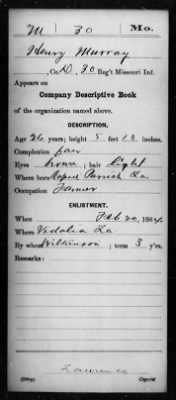 M 30 Mo.
Henry Murray
, Co. D, 30 Reg't Missouri Inf.
Appears on
Company Descriptive Book
of the organization named above.
DESCRIPTION.
Age 26 years; height 5 feet 10 inches.
Complexion fair
Eyes brown; hair light
Where born Raped Parrish La
Occupation Farmer
ENLISTMENT.
When Feb 20, 1864.
Where Vidalia La
By whom Wilkinson; term 3 y'rs.
Remarks:
Lawrence
Copyist.